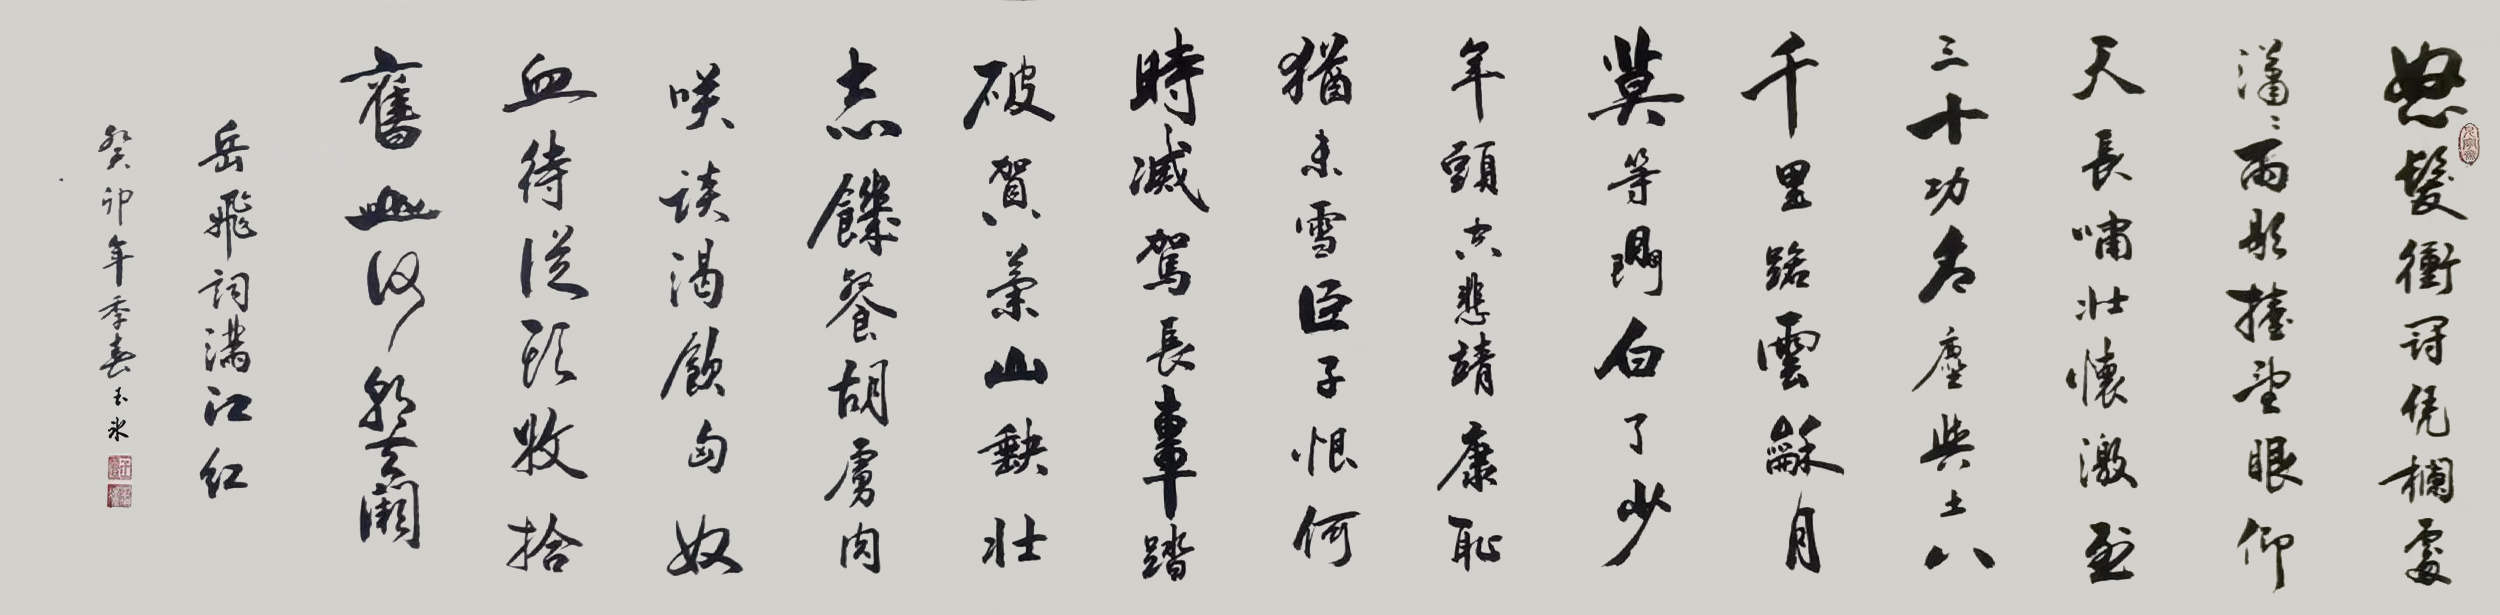 怒髮衝冠凭欄處
瀟瀟雨歇擡望眼仰
天長嘯壯懷激烈
三十功名塵與土八
千里路雲龢月
莫等閒白了少
年頭空悲靖康恥
猶未雪臣子恨何
時滅駕長車踏
破賀蘭山缺壯
志饑餐胡虜肉
咲談渴飲匈奴
血待從頭收拾
舊山河朝天闕
岳飛詞滿江紅
癸卯年季春玉冰